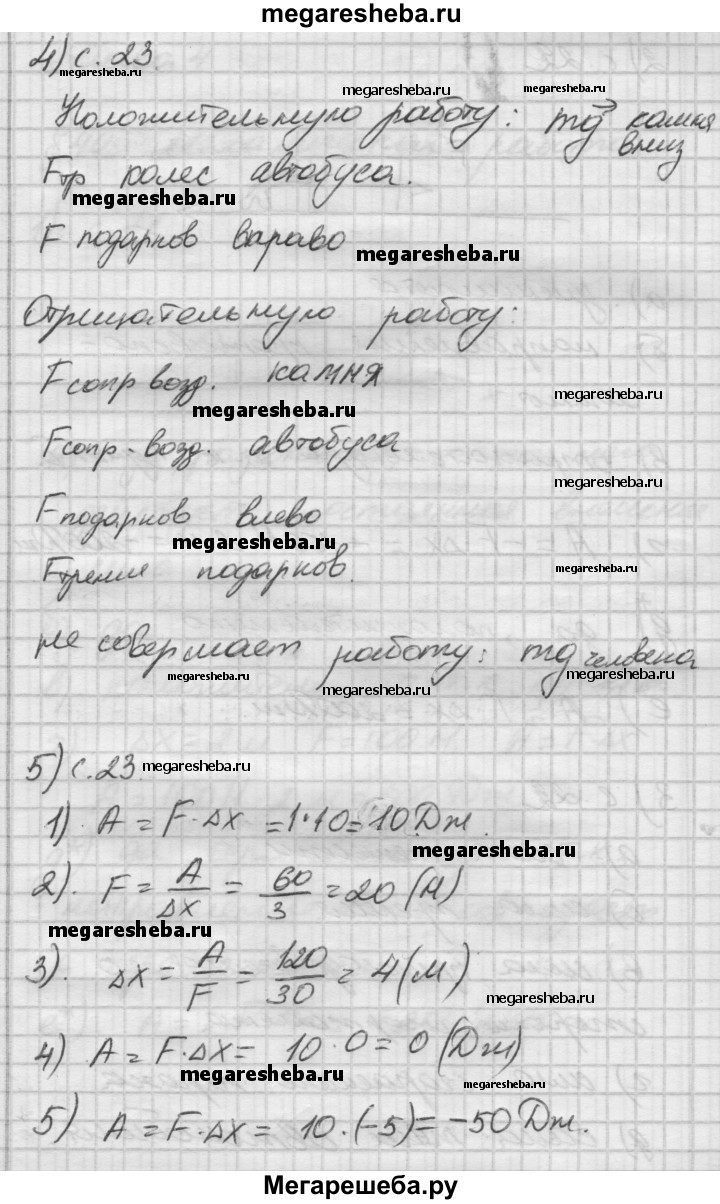 megaresheba.ru
4) с. 23
megaresheba.ru
Положительную работу: mg камня
вниз
Fтр колес автобуса.
megaresheba.ru
F подарков вправо
megaresheba.ru
Отрицательную работу:
Fсопр возд. камня
megaresheba.ru
megaresheba.ru
Fсопр. возд. автобуса
megaresheba.ru
Fподарков влево
megaresheba.ru
Fтрения подарков.
megaresheba.ru
не совершает работу: mg человека
megaresheba.ru
megaresheba.ru
megaresheba.ru
5) с. 23.
megaresheba.ru
1) A = F·Δx = 1·10 = 10 Дж.
megaresheba.ru
2). F = A/Δx = 60/3 = 20 (Н)
megaresheba.ru
3). Δx = A/F = 120/30 = 4 (м)
megaresheba.ru
4) A = F·Δx = 10·0 = 0 (Дж)
megaresheba.ru
megaresheba.ru
5) A = F·Δx = 10·(-5) = -50 Дж.
Мегарешеба.ру